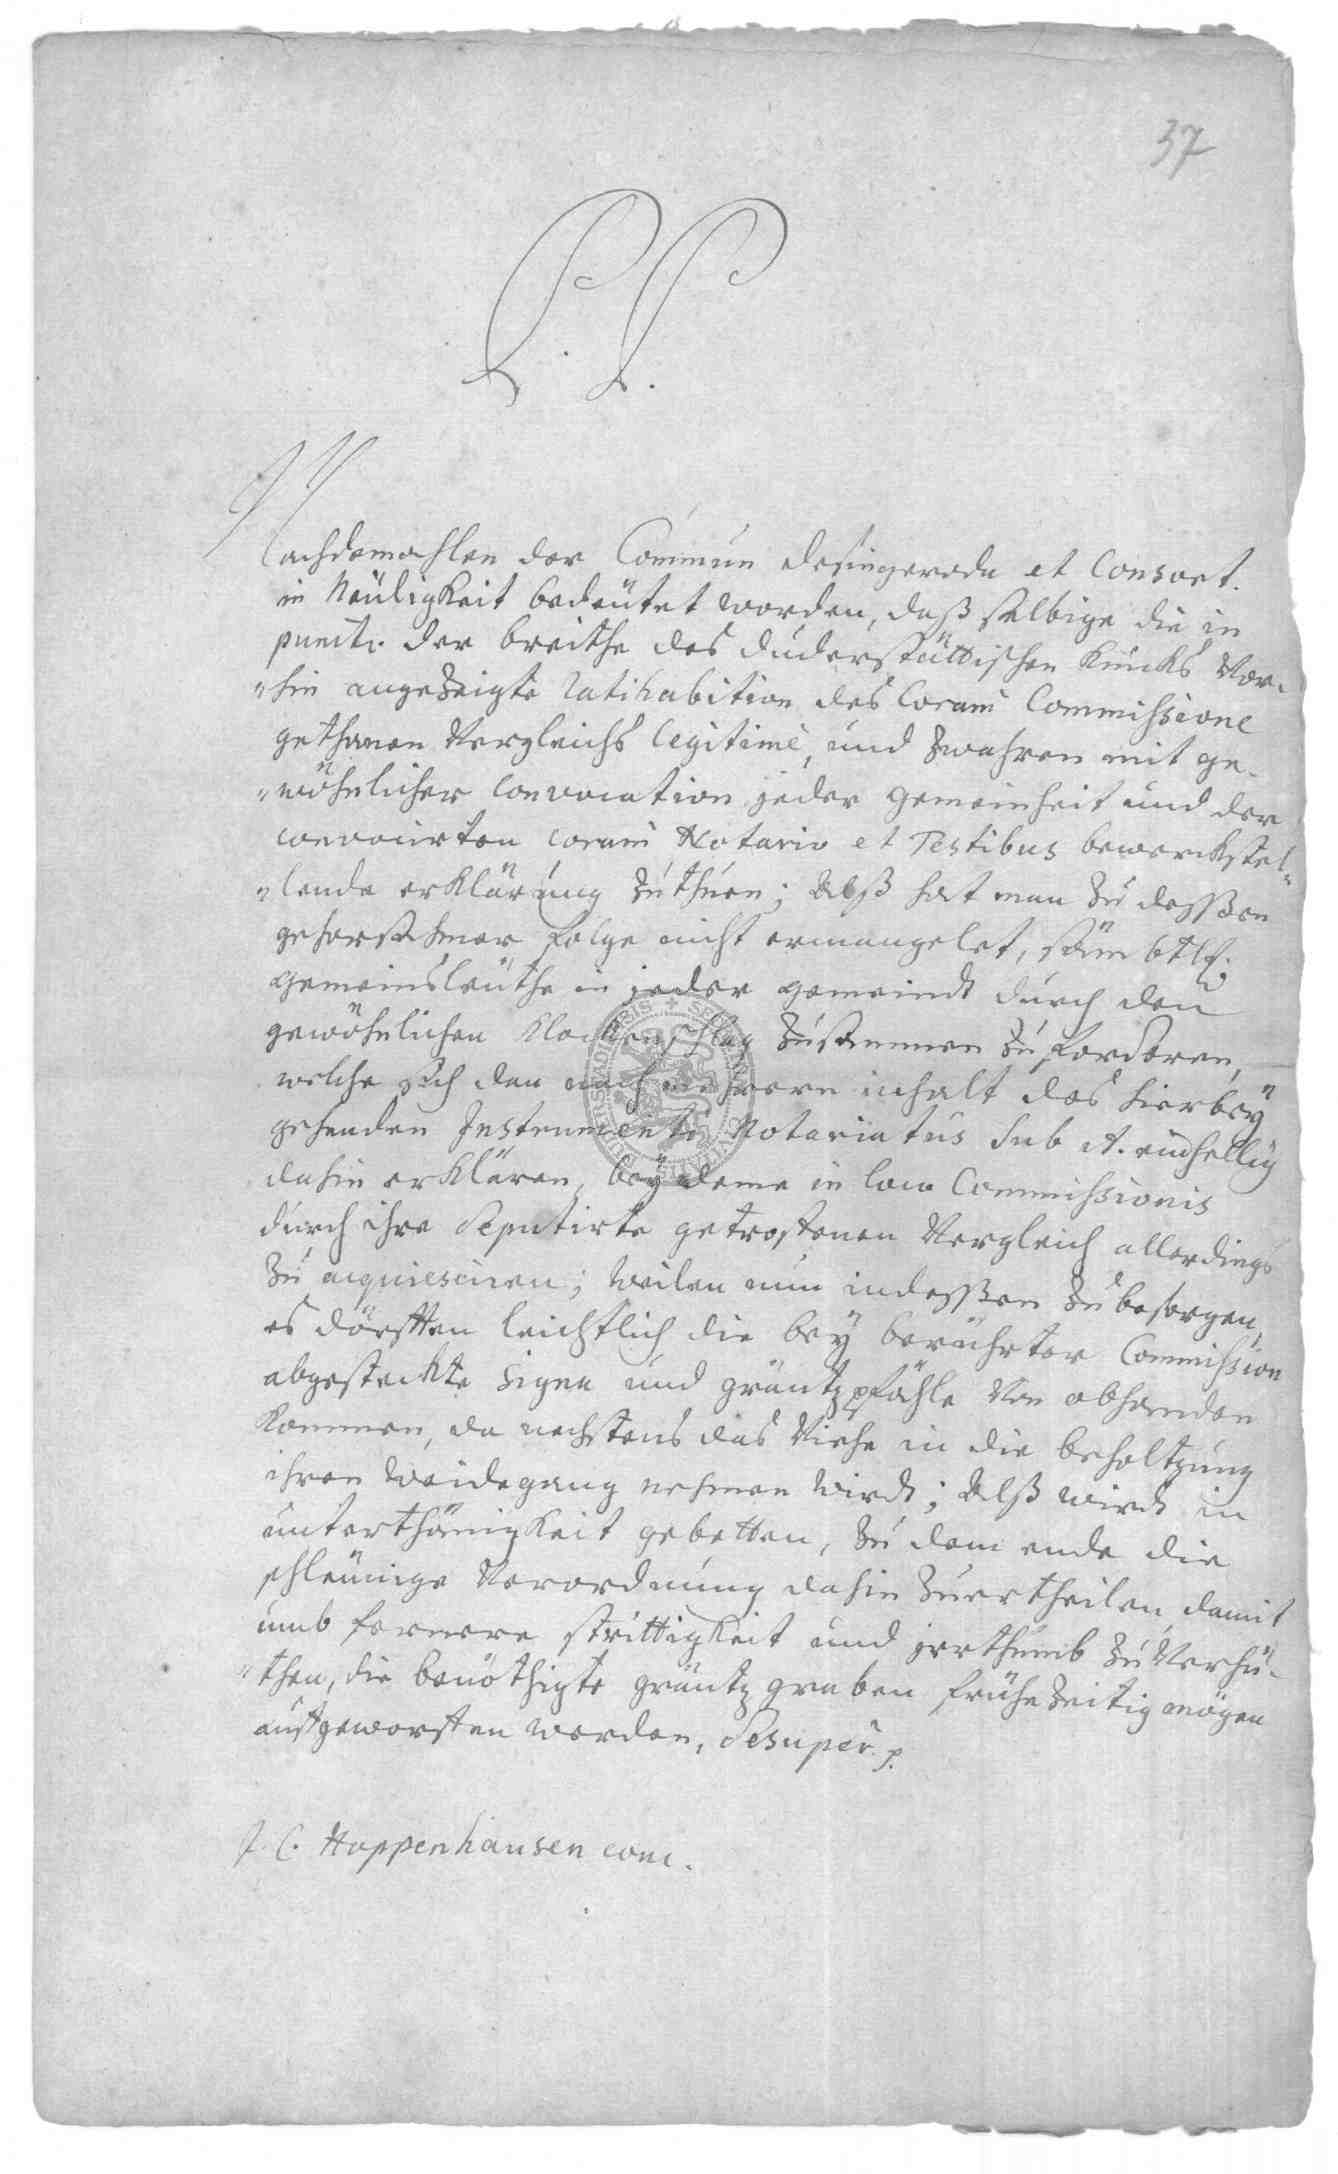 37
P. P.
Nachdemahlen der Commun Desingeroda et Consort.
in Neüligkeit bedeütet worden, daß selbige die in
puncto der breithe des duderstättischen Knicks Vor-
"hin angezeigte ratihabition des Coram Commissione
gethanen Vergleichs legitimè, und zwahren mit ge-
"wöhnlicher convocation jeder gemeinheit und der
convocirten coram Notario et Testibus bewerckstel-
"lende erklärung zu thuen; Alß hat man zu dessen
gehorsahmer folge nicht ermangelet, sämbtl.
gemeinsleüthe in jeder gemeindt durch den
gewöhnlichen Klockenschlag zusammen zu forderen,
welche sich dan nach mehrern inhalt des hierbey
gehenden Instrumenti Notariatus sub A. einhellig
dahin erklären, bey deme in loco Commissionis
durch ihre Deputirte getroffenen Vergleich allerdings
zu acquiesciren; Weilen nun indessen zu besorgen,
es dörfften leichtlich die bey berührter Commission
abgesteckte signa und gräntzpfähle Von abhanden
kommen, da nechstens das Viehe in die beholtzung
ihren Weidegang nehmen wirdt; Alß wirdt in
unterthänigkeit gebetten, zu dem ende die
schleünige Verordnung dahin zuertheilen, damit
umb fernere strittigkeit und jrrthumb zu Verhü-
"then, die benöthigte gräntz graben frühezeitig mögen
aufgeworffen werden, Desuper p.
J. C. Hoppenhausen conc.
SECRETVM
DVDERSTADIENSIS